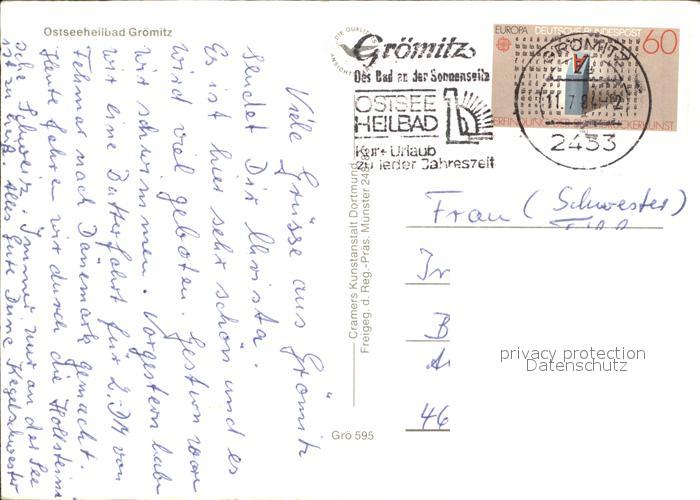 Ostseeheilbad Grömitz
Viele Grüsse aus Grömitz
sendet Dir Christa.
Es ist hier sehr schön und es
wird viel geboten. Gestern waren
wir schwimmen. Vorgestern haben
wir eine Butterfahrt für 2.-DM von
Fehmarn nach Dänemark gemacht.
Heute fahren wir durch die Holsteini
sche Schweiz. Immer nur an der See
ist zu heiß. Alles Gute Deine Kegelschwester
Cramers Kunstanstalt Dortmund
Freigeg. d. Reg.-Präs. Münster
Grö 595
Grömitz
Das Bad an der Sonnenseite
OSTSEE
HEILBAD
Kur + Urlaub
zu jeder Jahreszeit
EUROPA DEUTSCHE BUNDESPOST 60
GRÖMITZ
11.7.84-12
2433
Frau (Schwester)
In
B
46
privacy protection
Datenschutz